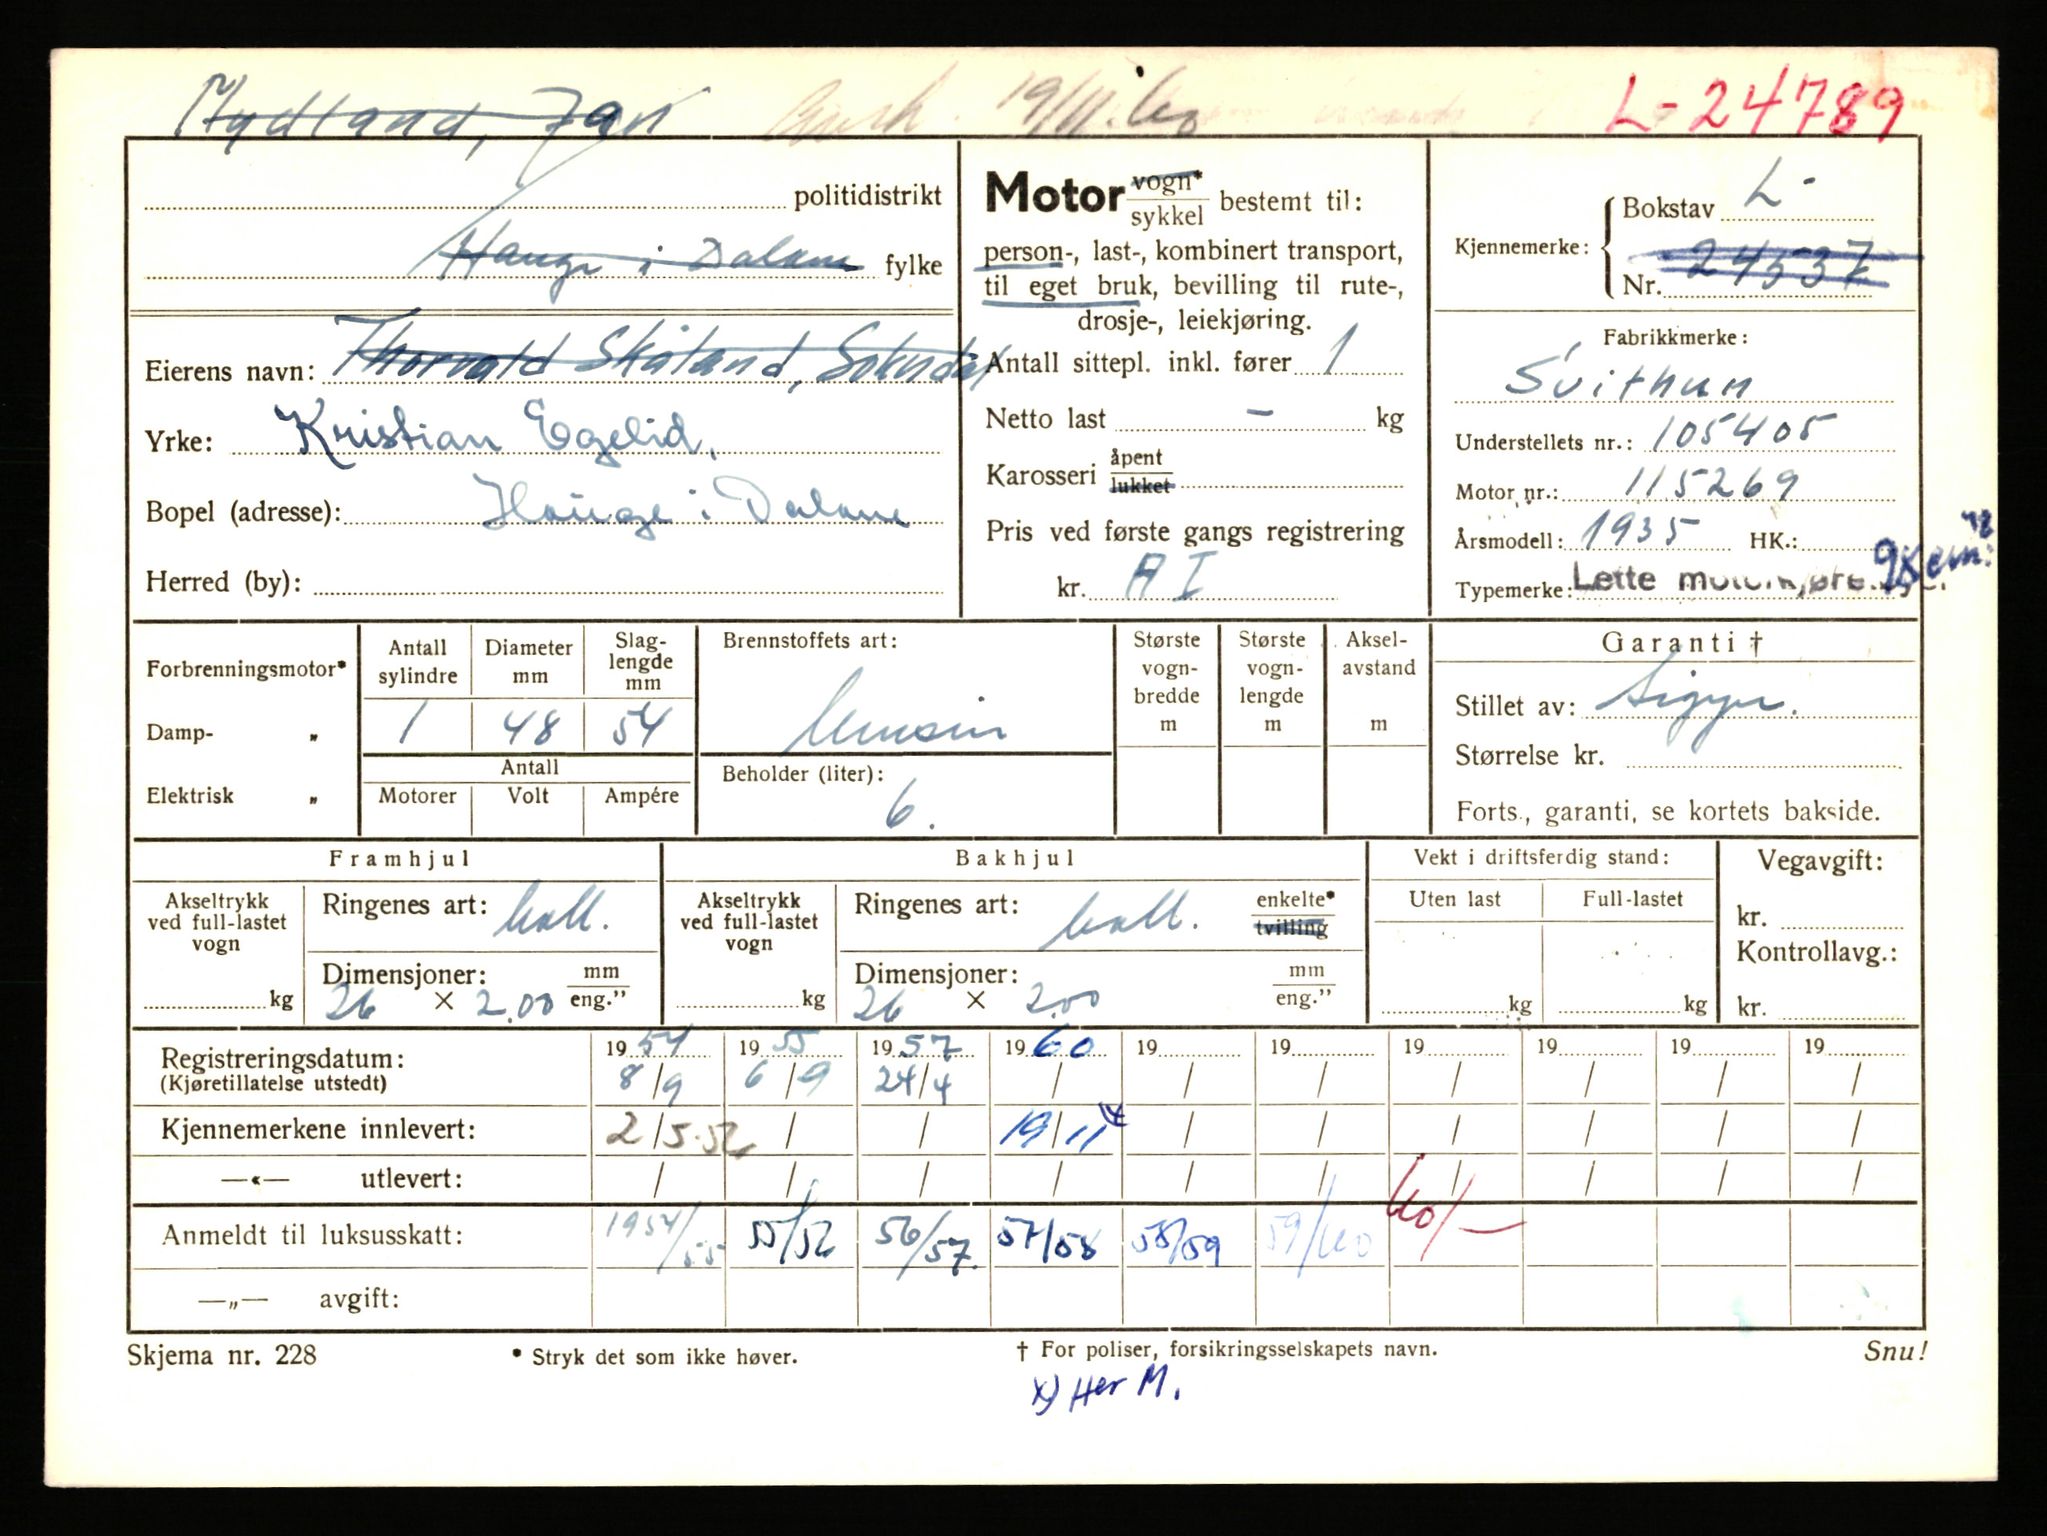 Mydland, Jan 19/11.60 L-24789
politidistrikt
Hauge i Dalane fylke
Eierens navn: Thorvald Skåland, Sokndal
Yrke: Kristian Egelid,
Bopel (adresse): Hauge i Dalane
Herred (by):
Motor vogn* sykkel bestemt til:
person-, last-, kombinert transport,
til eget bruk, bevilling til rute-,
drosje-, leiekjøring.
Antall sittepl. inkl. fører 1
Netto last - kg
Karosseri åpent lukket
Pris ved første gangs registrering
kr. A I
Kjennemerke: Bokstav L-
Nr. 24537
Fabrikkmerke:
Svithun
Understellets nr.: 105405
Motor nr.: 115269
Årsmodell: 1935 HK.:
Typemerke: Lette
98 cm³
Forbrenningsmotor*
Damp- „
Elektrisk „
Antall sylindre Diameter mm Slag-lengde mm
1 48 54
Antall
Motorer Volt Ampére
Brennstoffets art:
Bensin
Beholder (liter):
6.
Største vogn-bredde m
Største vogn-lengde m
Aksel-avstand m
Garanti †
Stillet av: Sigyn.
Størrelse kr.
Forts., garanti, se kortets bakside.
Framhjul
Akseltrykk ved full-lastet vogn
kg
Ringenes art: ball.
Dimensjoner: mm eng.”
26 × 2.00
Bakhjul
Akseltrykk ved full-lastet vogn
kg
Ringenes art: ball. enkelte* tvilling
Dimensjoner: mm eng.”
26 × 2.00
Vekt i driftsferdig stand:
Uten last Full-lastet
kg kg
Vegavgift:
kr.
Kontrollavg.:
kr.
Registreringsdatum: 1954 1955 1957 1960 19 19 19 19 19 19
(Kjøretillatelse utstedt) 8/9 6/9 24/4 / / / / / / /
Kjennemerkene innlevert: 2/5.56 / / 19/11 x) / / / / / /
—«— utlevert: / / / / / / / / / /
Anmeldt til luksusskatt: 1954/55 55/56 56/57. 57/58 58/59 59/60 60/—
—„— avgift:
Skjema nr. 228 * Stryk det som ikke høver. † For poliser, forsikringsselskapets navn. Snu!
x) Her M.